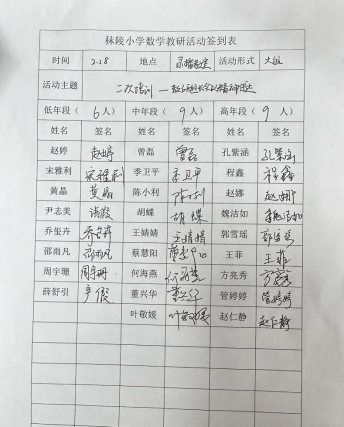 秣陵小学数学教研活动签到表
时间 2.28 地点 录播教室 活动形式 大组
活动主题 二次培训
低年段（6人） 中年段（9人） 高年段（9人）
姓名 签名 姓名 签名 姓名 签名
赵婷 赵婷 曾磊 曾磊 孔紫涵 孔紫涵
宋雅利 宋雅利 季卫平 季卫平 程鑫 程鑫
黄晶 黄晶 陈小利 陈小利 赵娜 赵娜
尹志美 请假 胡蝶 胡蝶 魏洁如 魏洁如
乔玺卉 乔玺卉 王婧婧 王婧婧 郭雪瑶 郭雪瑶
邵雨凡 邵雨凡 蔡慧阳 王菲 王菲
周宇珊 周宇珊 何海燕 何海燕 方亮秀 方亮秀
薛舒引 产假 董兴华 董兴华 管婷婷 管婷婷
叶敬媛 叶敬媛 赵仁静 赵仁静